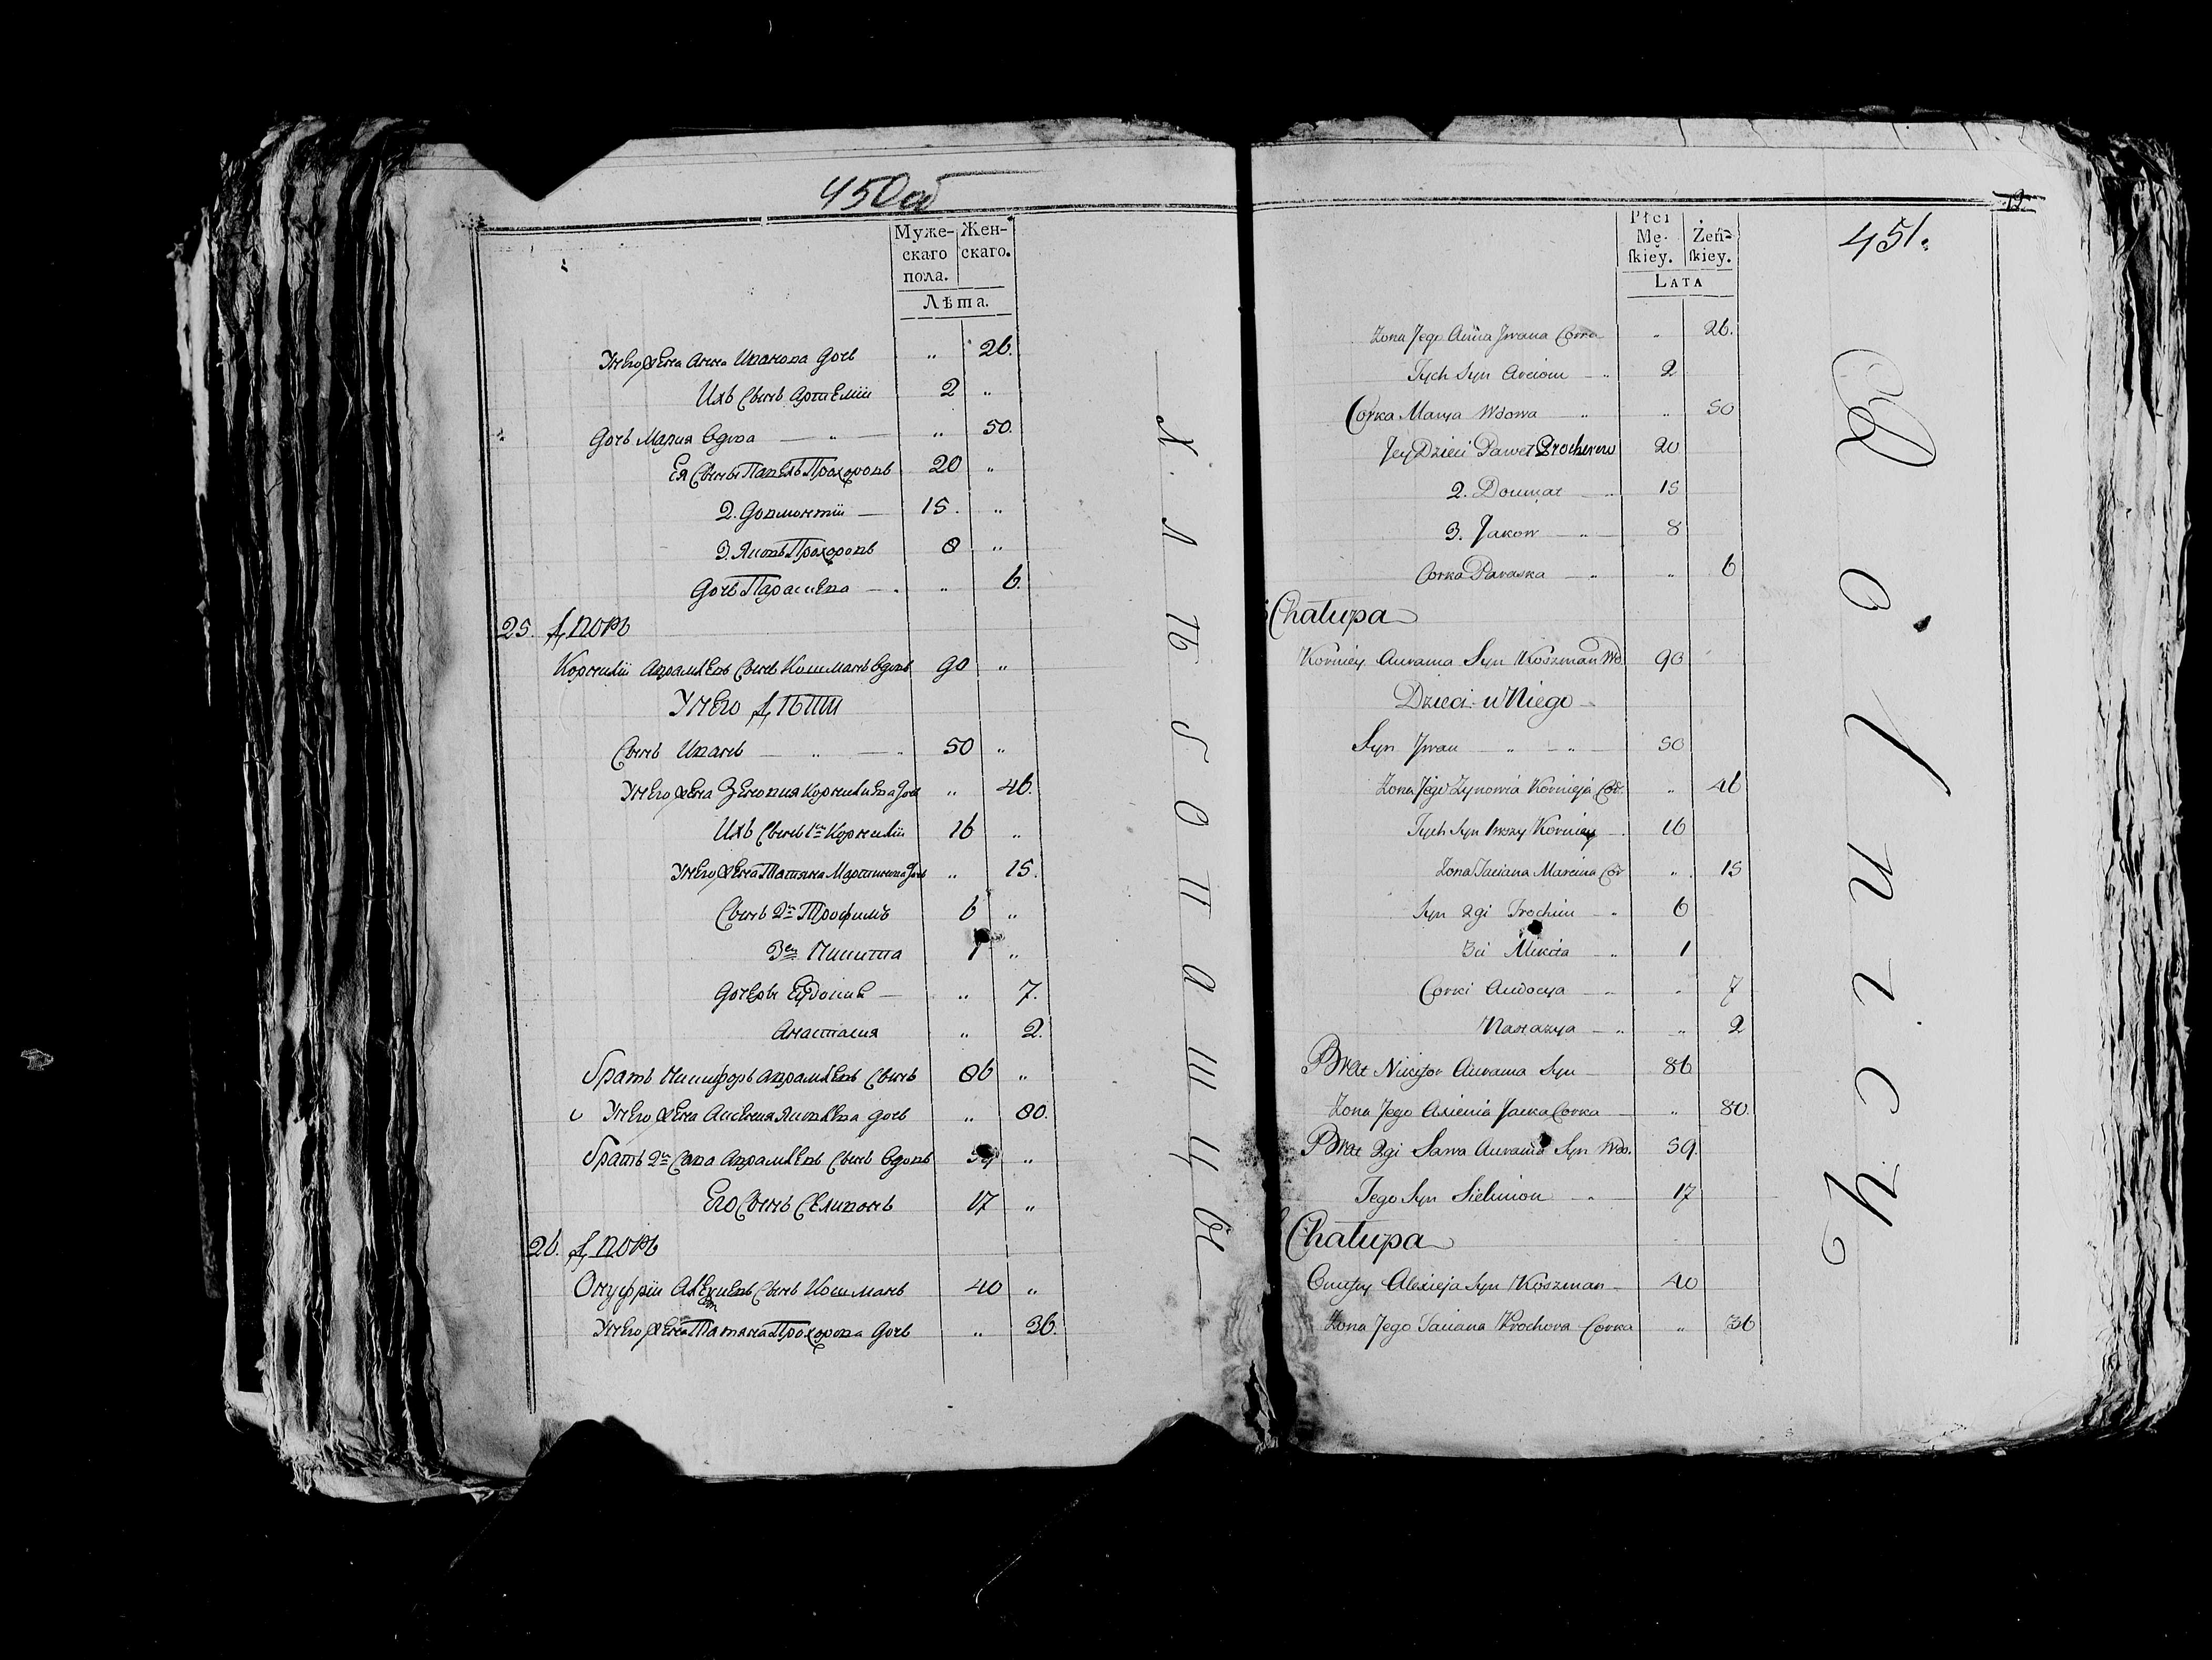 450 об
Муже-
скаго
пола.
Жен-
скаго.
Лѣта.
У него жена Анна Иванова дочь " 26.
Ихъ сынъ Артемiй 2 "
Дочь Мария вдова — " — " 50.
Ея сыны Павелъ Прохоровъ 20 "
2. Довмонтiй — 15. "
3. Яковъ Прохоровъ 8 "
Дочь Параскева — " 6.
25. Дворъ
Корнилiй Аврамлевъ сынъ Кошманъ вдовъ 90 "
У него дѣти
Сынъ Иванъ — " — 50 "
У него жена Зеновия Корнилиева дочь " 46.
Ихъ сынъ 1й Корнилiй 16 "
У него жена Татяна Мартинова дочь " 15.
Сынъ 2й Трофимъ 6 "
3ей Никита 1 "
Дочеры Евдокия — " 7.
Анастасия " 2.
Братъ Никифоръ Аврамлевъ сынъ 86 "
У него жена Аксения Яковлева дочь " 80.
Братъ 2й Сава Аврамлевъ сынъ вдовъ 59 "
Его сынъ Селивонъ 17 "
26. Дворъ
Онуфрiй Алексиевъ сынъ Кошманъ 40 "
У него жена Татяна Прохорова дочь " 36.
Хлѣбопашцы
12
451.
Płci
Mę-
ſkiey.
Żeń-
ſkiey.
LATA
Zona Jego Anna Jwana Corka " 26.
Tych Syn Arciom — " 2
Corka Marya Wdowa " " 50
Jey Dzieci Paweł Prochorow 20
2. Doumat — " 15
3. Jakow — " — 8
Corka Paraska — " " 6
Chałupa
Korniey Aurama Syn Koszman Wd. 90
Dzieci u Niego
Syn Jwan — " — " — 50
Zona Jego Zynowia Kornieja Cor. " 46
Tych Syn 1wszy Korniey 16
Zona Taciana Marcina Cor " 15
Syn 2gi Trochim — " 6
3ci Mikita — " 1
Corki Audocya — " 7
Nastazya — " " 2
Brat Nikifor Aurama Syn — 86
Zona Jego Axienia Jacka Corka — " 80.
Brat 2gi Sawa Aurama Syn Wdo. 59.
Tego Syn Sieliwon — " 17
Chałupa
Onufry Alexieja Syn Koszman — 40
Zona Jego Taciana Prochora Corka " 36
Rolnicy